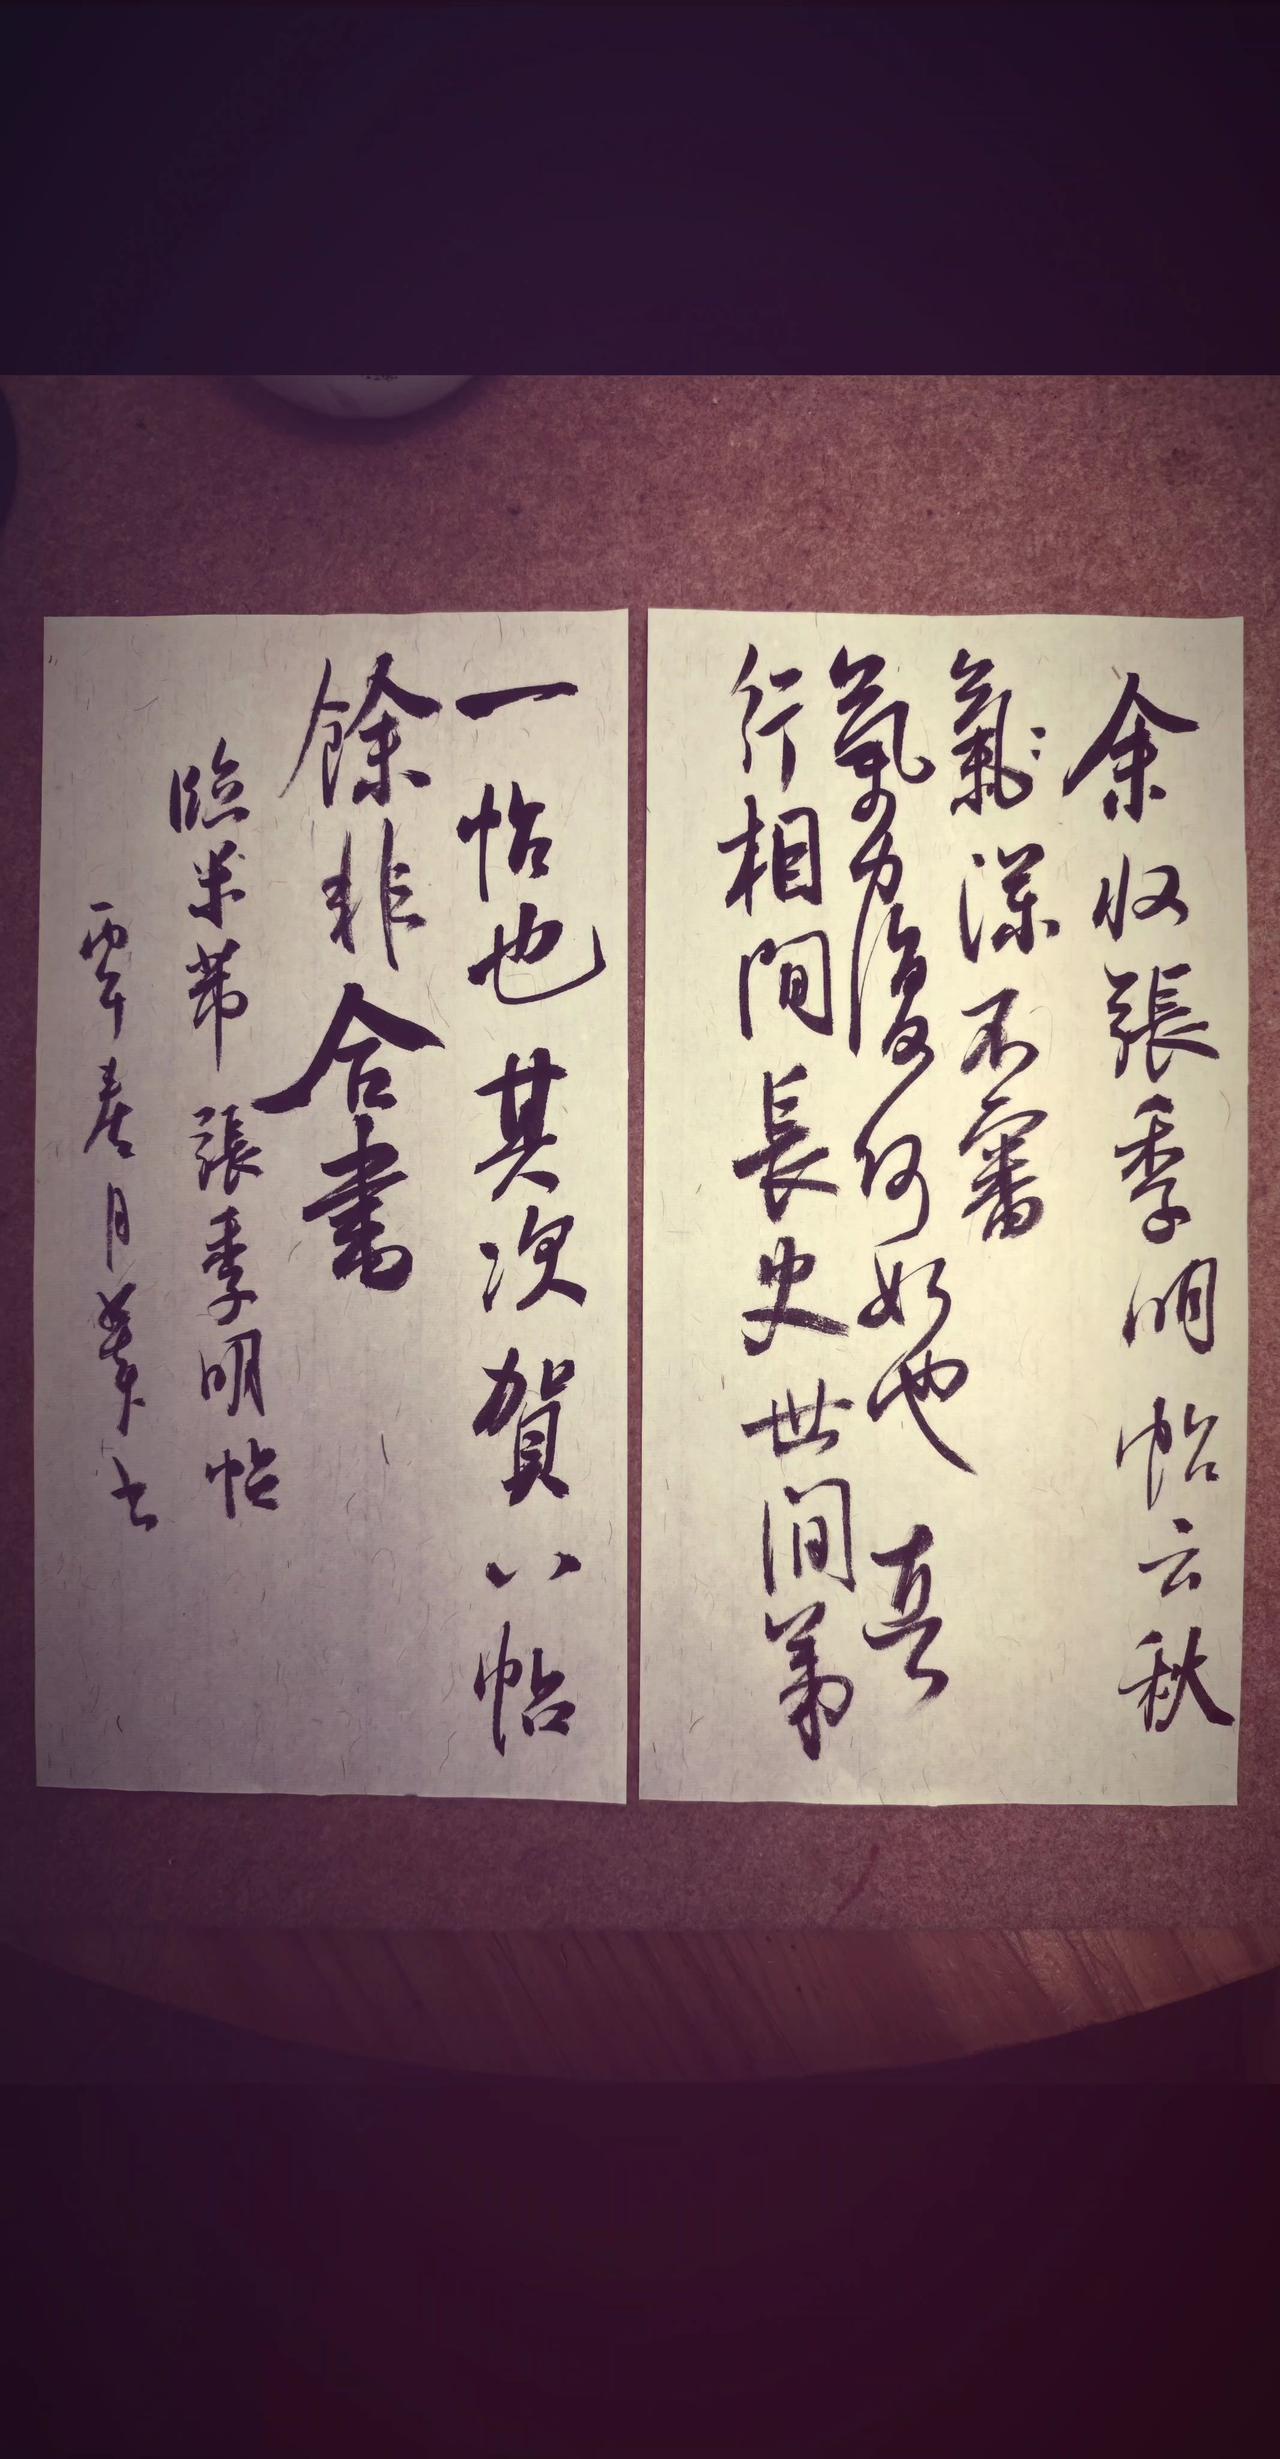 余收張季明帖云秋
氣深不審
氣力復何如也真
行相間長史世間第
一帖也其次賀八帖
餘非合書
臨米芾張季明帖
丙午春月